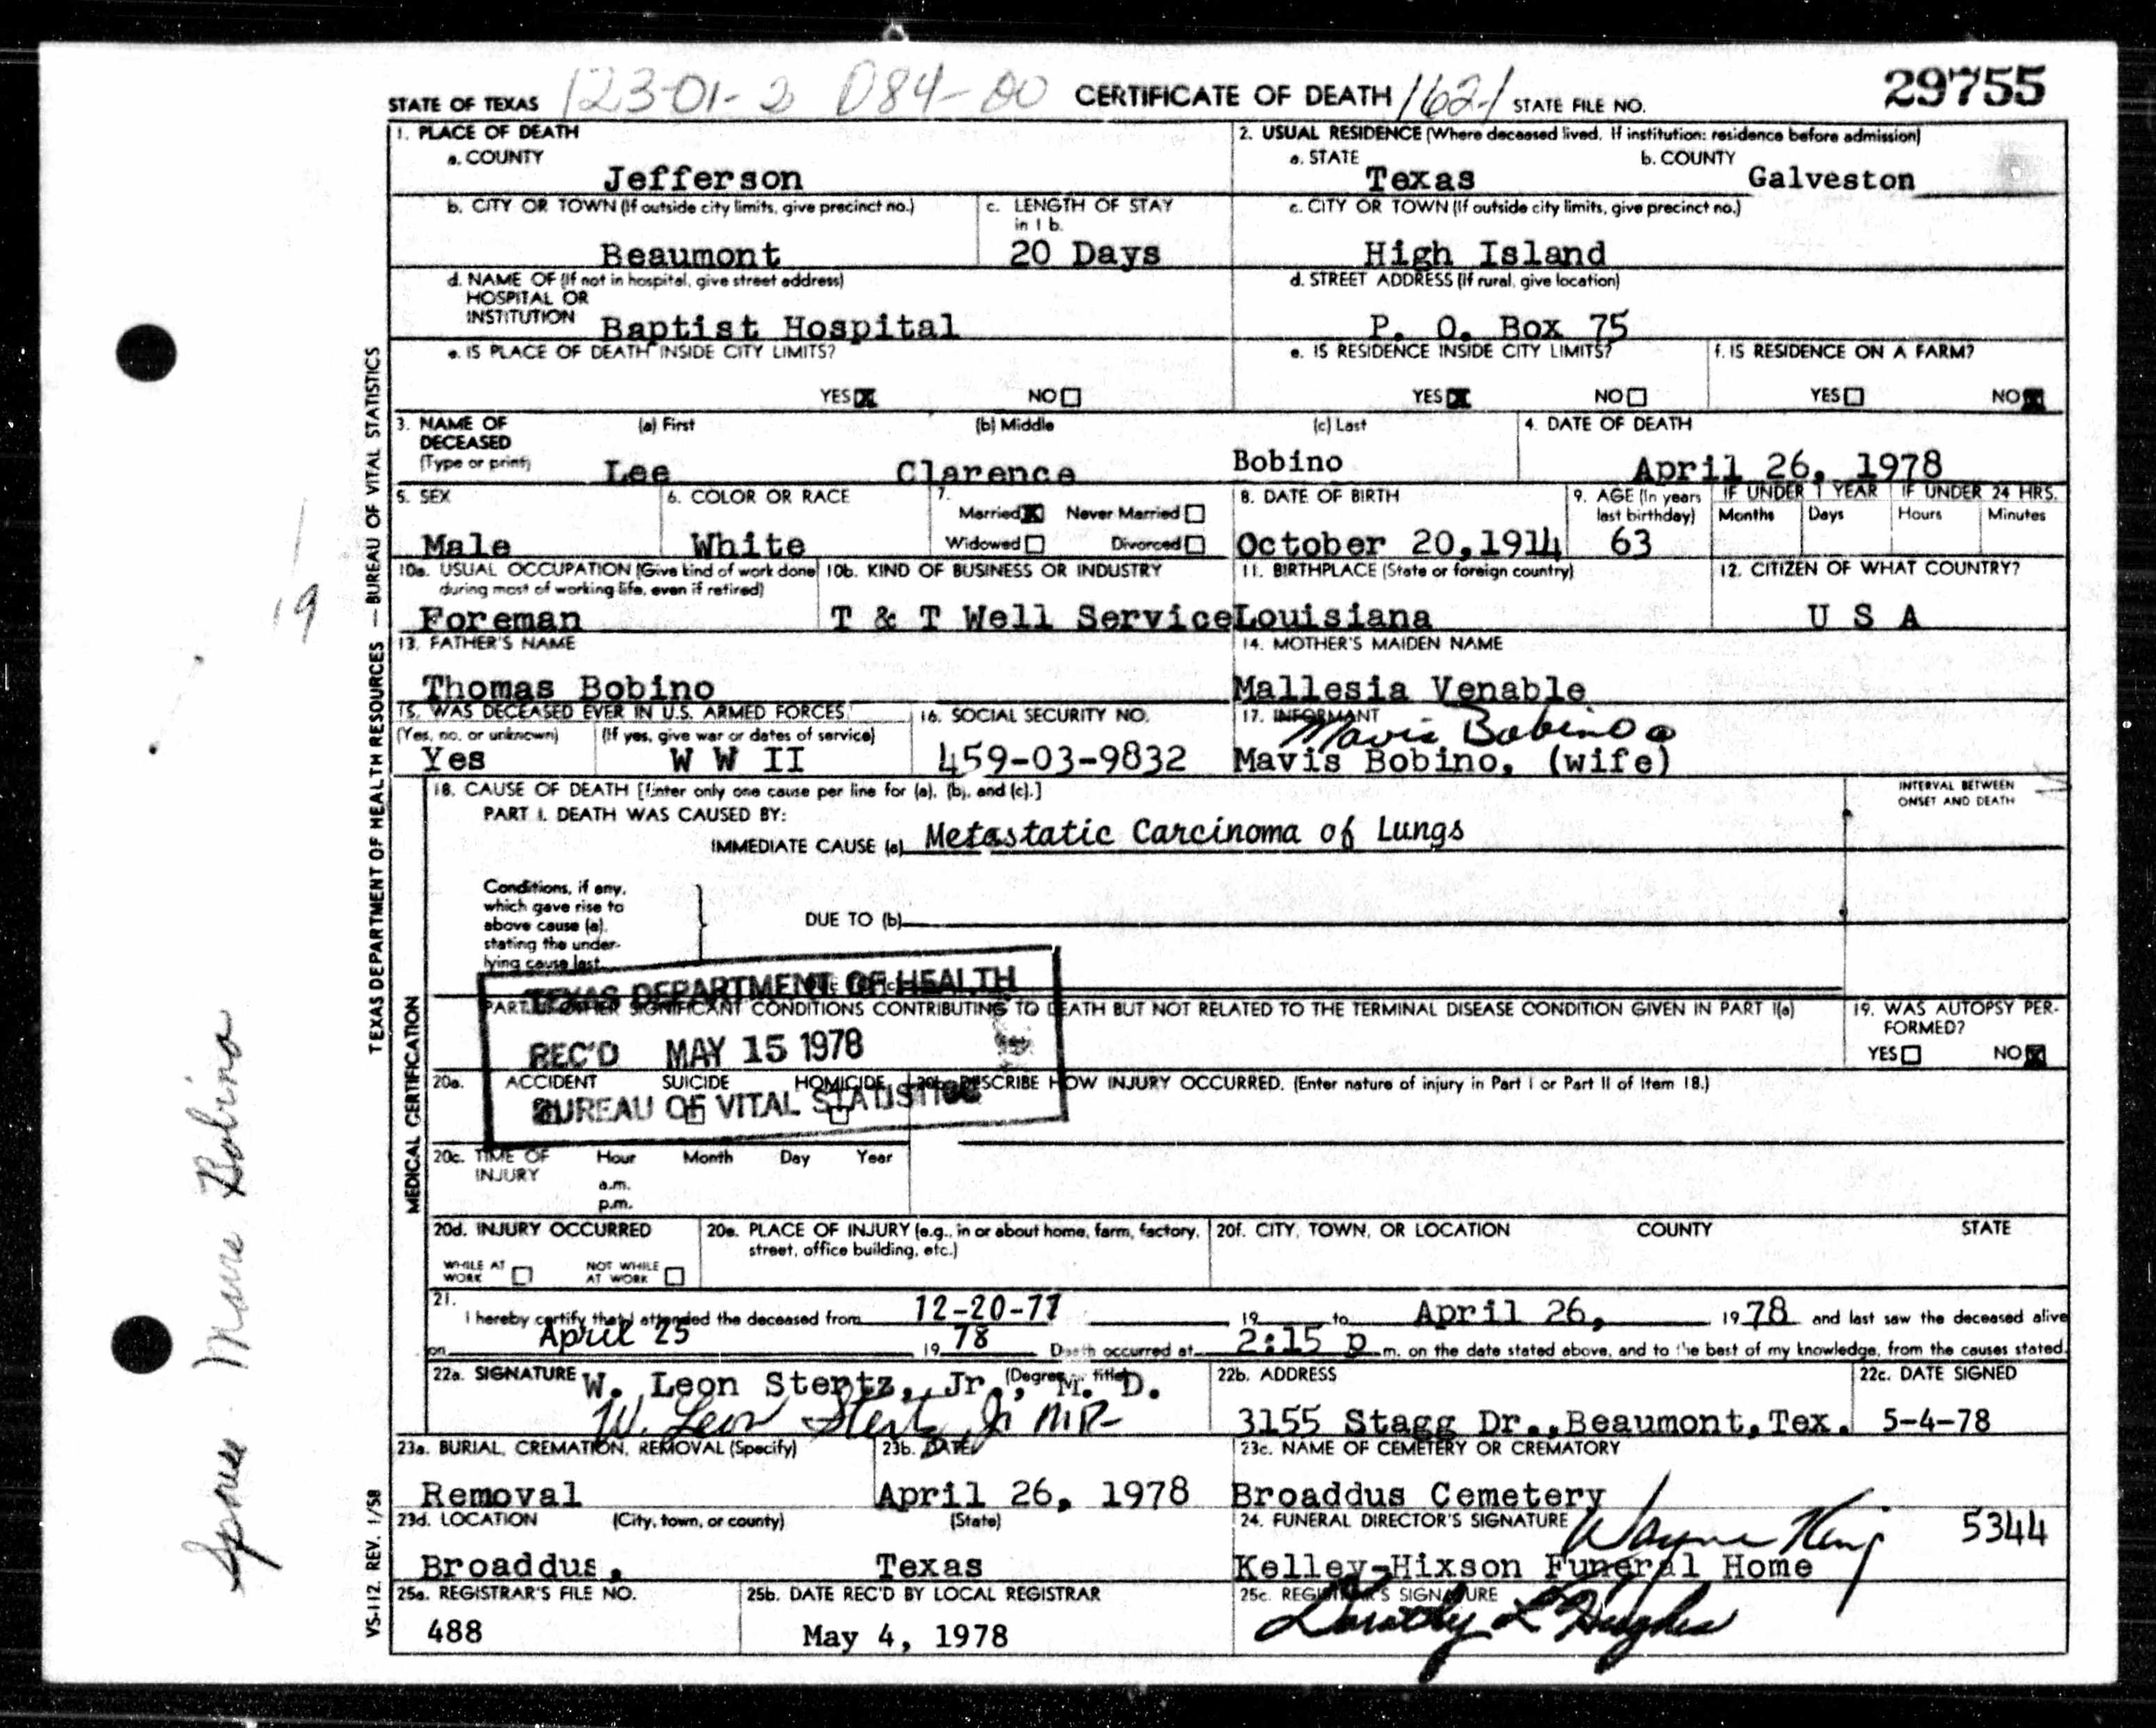 STATE OF TEXAS 123-01-2 084-00 CERTIFICATE OF DEATH 162-1 STATE FILE NO. 29755
1. PLACE OF DEATH
a. COUNTY
Jefferson
2. USUAL RESIDENCE (Where deceased lived. If institution: residence before admission)
a. STATE
Texas
b. COUNTY
Galveston
b. CITY OR TOWN (If outside city limits, give precinct no.)
Beaumont
c. LENGTH OF STAY
in 1 b.
20 Days
c. CITY OR TOWN (If outside city limits, give precinct no.)
High Island
d. NAME OF (If not in hospital, give street address)
HOSPITAL OR
INSTITUTION Baptist Hospital
d. STREET ADDRESS (If rural, give location)
P. O. Box 75
e. IS PLACE OF DEATH INSIDE CITY LIMITS?
YES NO
e. IS RESIDENCE INSIDE CITY LIMITS?
YES NO
f. IS RESIDENCE ON A FARM?
YES NO
3. NAME OF
DECEASED
(Type or print)
(a) First
Lee
(b) Middle
Clarence
(c) Last
Bobino
4. DATE OF DEATH
April 26, 1978
5. SEX
Male
6. COLOR OR RACE
White
7.
Married Never Married
Widowed Divorced
8. DATE OF BIRTH
October 20,1914
9. AGE (In years
last birthday)
63
IF UNDER 1 YEAR
Months Days
IF UNDER 24 HRS.
Hours Minutes
10a. USUAL OCCUPATION (Give kind of work done
during most of working life, even if retired)
Foreman
10b. KIND OF BUSINESS OR INDUSTRY
T & T Well Service
11. BIRTHPLACE (State or foreign country)
Louisiana
12. CITIZEN OF WHAT COUNTRY?
U S A
13. FATHER'S NAME
Thomas Bobino
14. MOTHER'S MAIDEN NAME
Mallesia Venable
15. WAS DECEASED EVER IN U.S. ARMED FORCES?
(Yes, no, or unknown)
Yes
(If yes, give war or dates of service)
W W II
16. SOCIAL SECURITY NO.
459-03-9832
17. INFORMANT
Mavis Bobino
Mavis Bobino, (wife)
18. CAUSE OF DEATH [Enter only one cause per line for (a), (b), and (c).]
PART I. DEATH WAS CAUSED BY:
IMMEDIATE CAUSE (a) Metastatic Carcinoma of Lungs
INTERVAL BETWEEN
ONSET AND DEATH
Conditions, if any,
which gave rise to
above cause (a),
stating the under-
lying cause last.
DUE TO (b)
TEXAS DEPARTMENT OF HEALTH
REC'D MAY 15 1978
BUREAU OF VITAL STATISTICS
PART II. OTHER SIGNIFICANT CONDITIONS CONTRIBUTING TO DEATH BUT NOT RELATED TO THE TERMINAL DISEASE CONDITION GIVEN IN PART I(a)
19. WAS AUTOPSY PER-
FORMED?
YES NO
20a. ACCIDENT SUICIDE HOMICIDE
20b. DESCRIBE HOW INJURY OCCURRED. (Enter nature of injury in Part I or Part II of Item 18.)
20c. TIME OF
INJURY
Hour Month Day Year
a.m.
p.m.
20d. INJURY OCCURRED
WHILE AT
WORK
NOT WHILE
AT WORK
20e. PLACE OF INJURY (e.g., in or about home, farm, factory,
street, office building, etc.)
20f. CITY, TOWN, OR LOCATION COUNTY STATE
21.
I hereby certify that I attended the deceased from 12-20-77 19 to April 26, 1978 and last saw the deceased alive
on April 25 19 78 Death occurred at 2:15 p.m. on the date stated above, and to the best of my knowledge, from the causes stated.
22a. SIGNATURE (Degree or title)
W. Leon Stertz, Jr., M. D.
W. Leon Stertz Jr MD
22b. ADDRESS
3155 Stagg Dr., Beaumont, Tex.
22c. DATE SIGNED
5-4-78
23a. BURIAL, CREMATION, REMOVAL (Specify)
Removal
23b. DATE
April 26, 1978
23c. NAME OF CEMETERY OR CREMATORY
Broaddus Cemetery
23d. LOCATION (City, town, or county) (State)
Broaddus, Texas
24. FUNERAL DIRECTOR'S SIGNATURE
Wayne King 5344
Kelley-Hixson Funeral Home
25a. REGISTRAR'S FILE NO.
488
25b. DATE REC'D BY LOCAL REGISTRAR
May 4, 1978
25c. REGISTRAR'S SIGNATURE
Dorothy L Hughes
TEXAS DEPARTMENT OF HEALTH RESOURCES — BUREAU OF VITAL STATISTICS
MEDICAL CERTIFICATION
VS-112 REV. 1/58
19
Spouse - Mavis Bobino